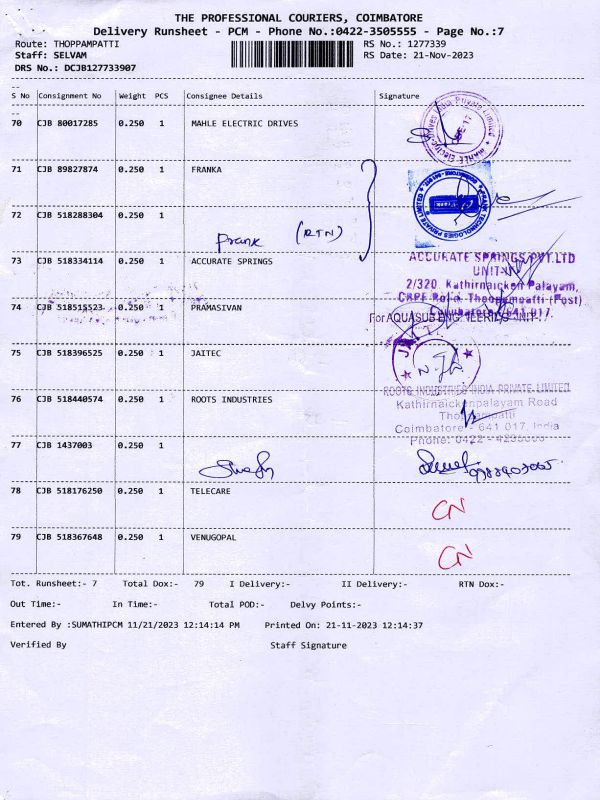 THE PROFESSIONAL COURIERS, COIMBATORE
Delivery Runsheet - PCM - Phone No.:0422-3505555 - Page No.:7
Route: THOPPAMPATTI RS No.: 1277339
Staff: SELVAM RS Date: 21-Nov-2023
DRS No.: DCJB127733907
S No Consignment No Weight PCS Consignee Details Signature
70 CJB 80017285 0.250 1 MAHLE ELECTRIC DRIVES
71 CJB 89827874 0.250 1 FRANKA
72 CJB 518288304 0.250 1
Frank (RTN)
73 CJB 518334114 0.250 1 ACCURATE SPRINGS
ACCURATE SPRINGS PVT.LTD
UNIT-IV
2/320, Kathirnaicken Palayam,
CRPF Road, Thoppampatti (Post)
Coimbatore - 641 017.
74 CJB 518515523 0.250 1 PRAMASIVAN
For AQUASUB ENGINEERING UNIT
75 CJB 518396525 0.250 1 JAITEC
76 CJB 518440574 0.250 1 ROOTS INDUSTRIES
ROOTS INDUSTRIES INDIA PRIVATE LIMITED
Kathirnaickenpalayam Road
Thoppampatti
Coimbatore - 641 017, India
Phone: 0422 -
77 CJB 1437003 0.250 1
78 CJB 518176250 0.250 1 TELECARE CN
79 CJB 518367648 0.250 1 VENUGOPAL CN
Tot. Runsheet:- 7 Total Dox:- 79 I Delivery:- II Delivery:- RTN Dox:-
Out Time:- In Time:- Total POD:- Delvy Points:-
Entered By :SUMATHIPCM 11/21/2023 12:14:14 PM Printed On: 21-11-2023 12:14:37
Verified By Staff Signature